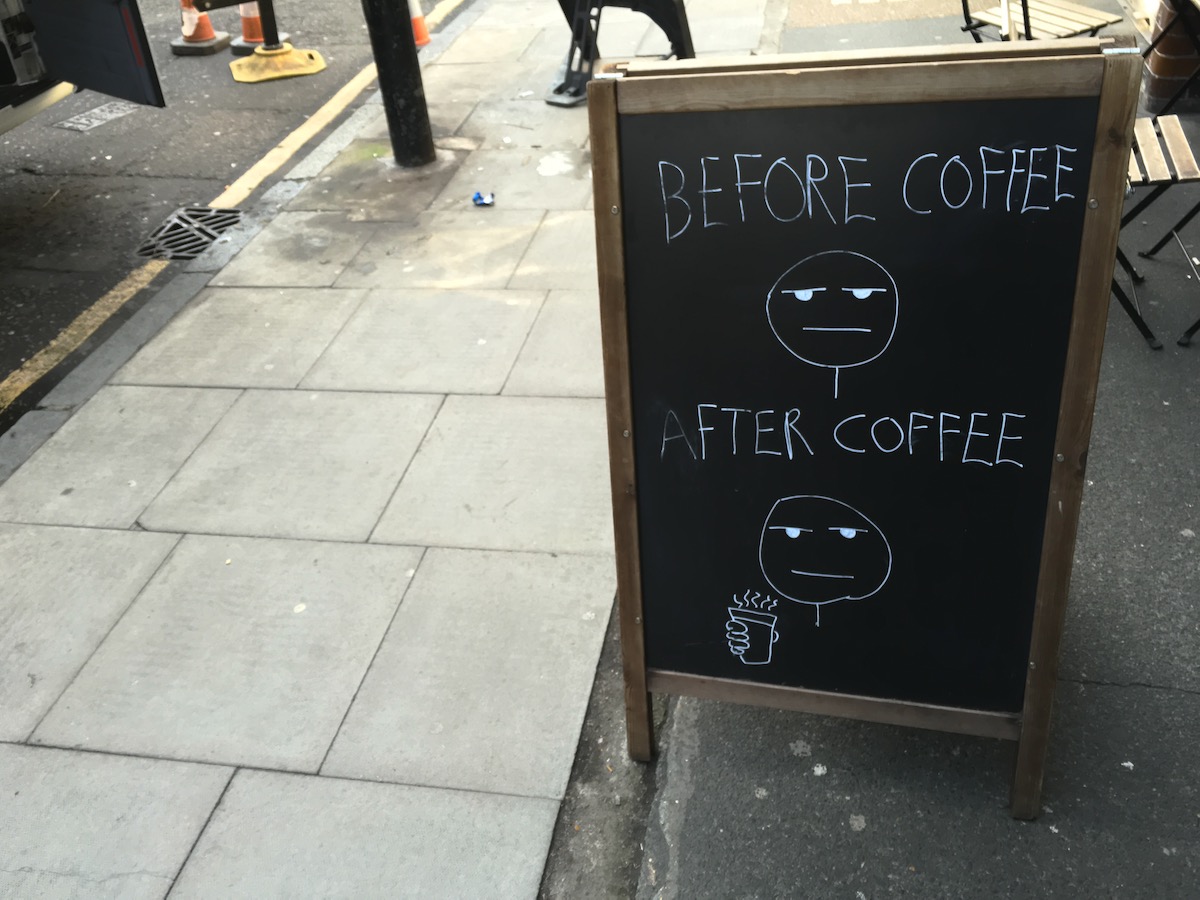 BEFORE COFFEE
AFTER COFFEE